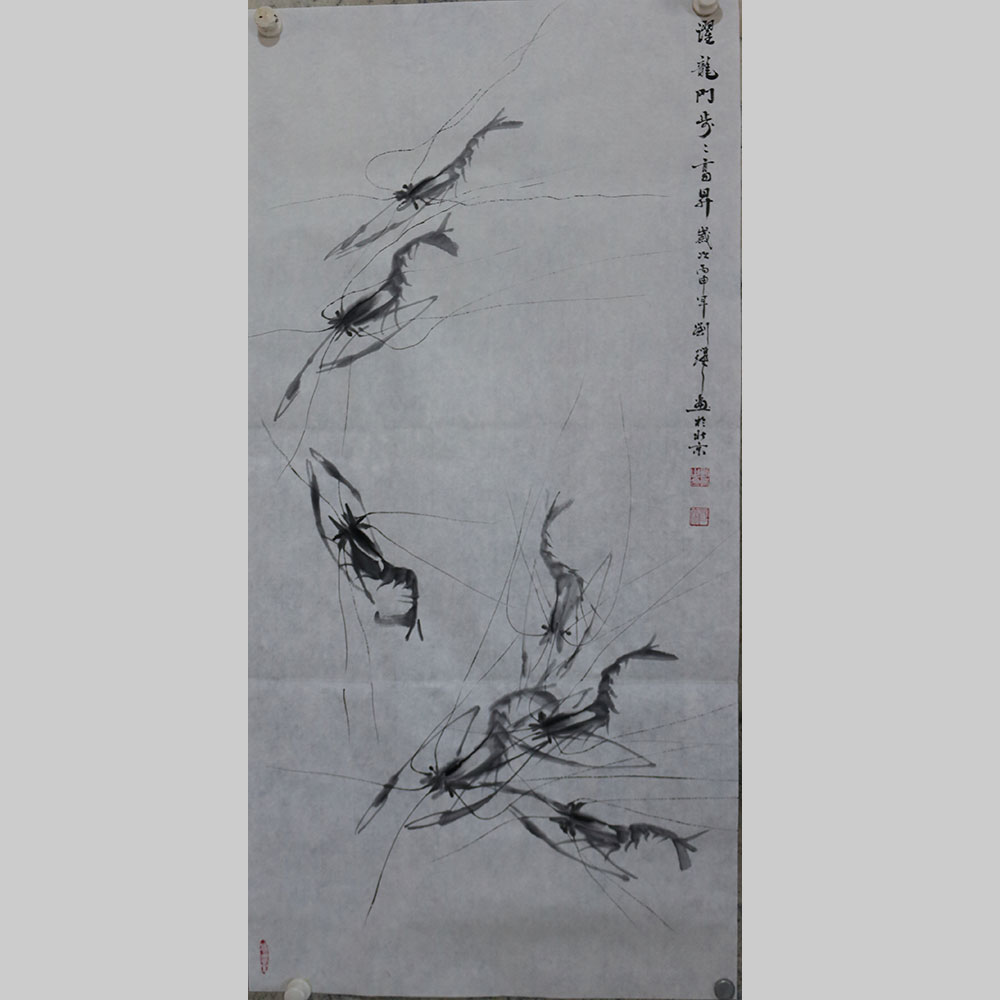 躍龍門步〻高昇歲次丙申年劉畫於北京